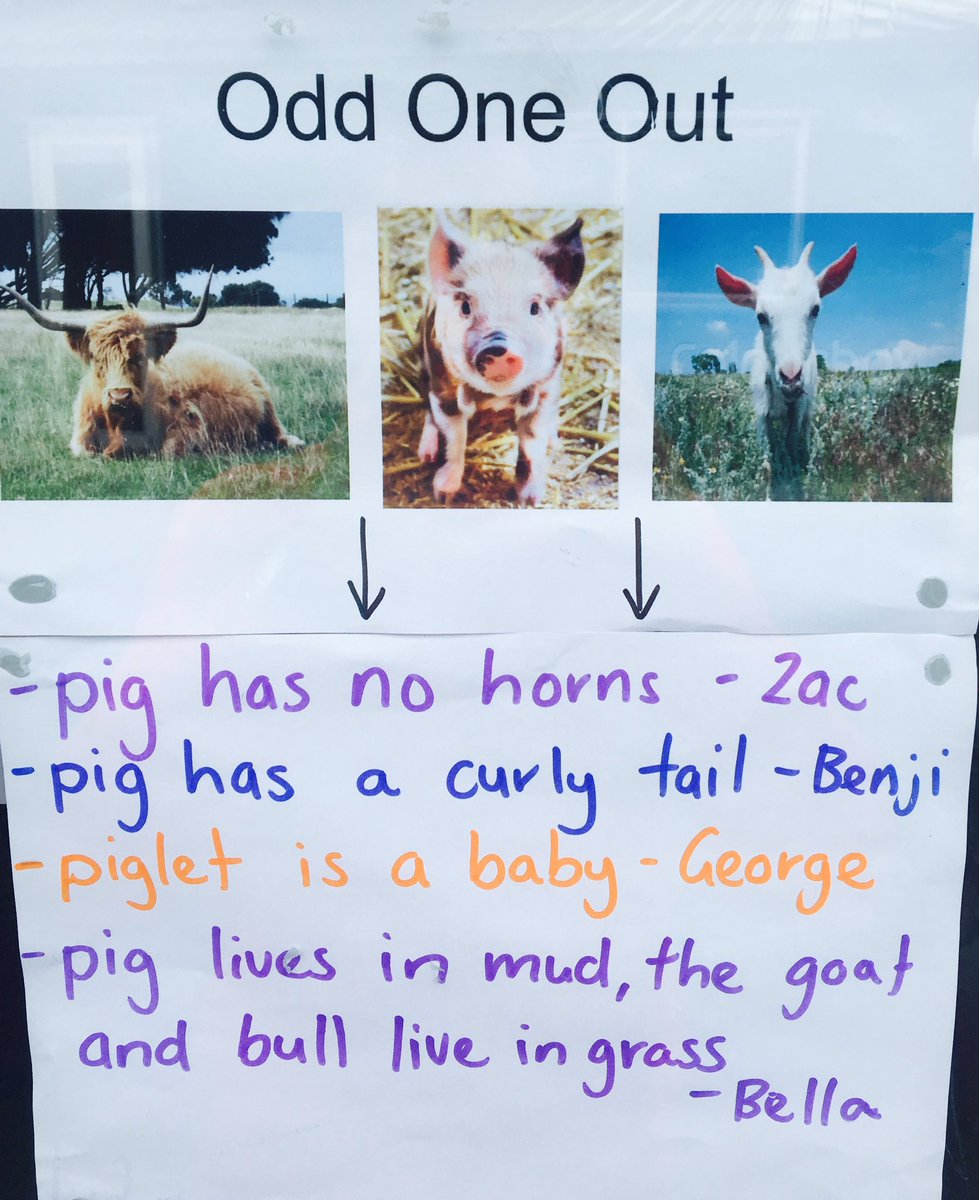 Odd One Out
-pig has no horns - Zac
-pig has a curly tail - Benji
-piglet is a baby - George
-pig lives in mud, the goat
and bull live in grass
- Bella